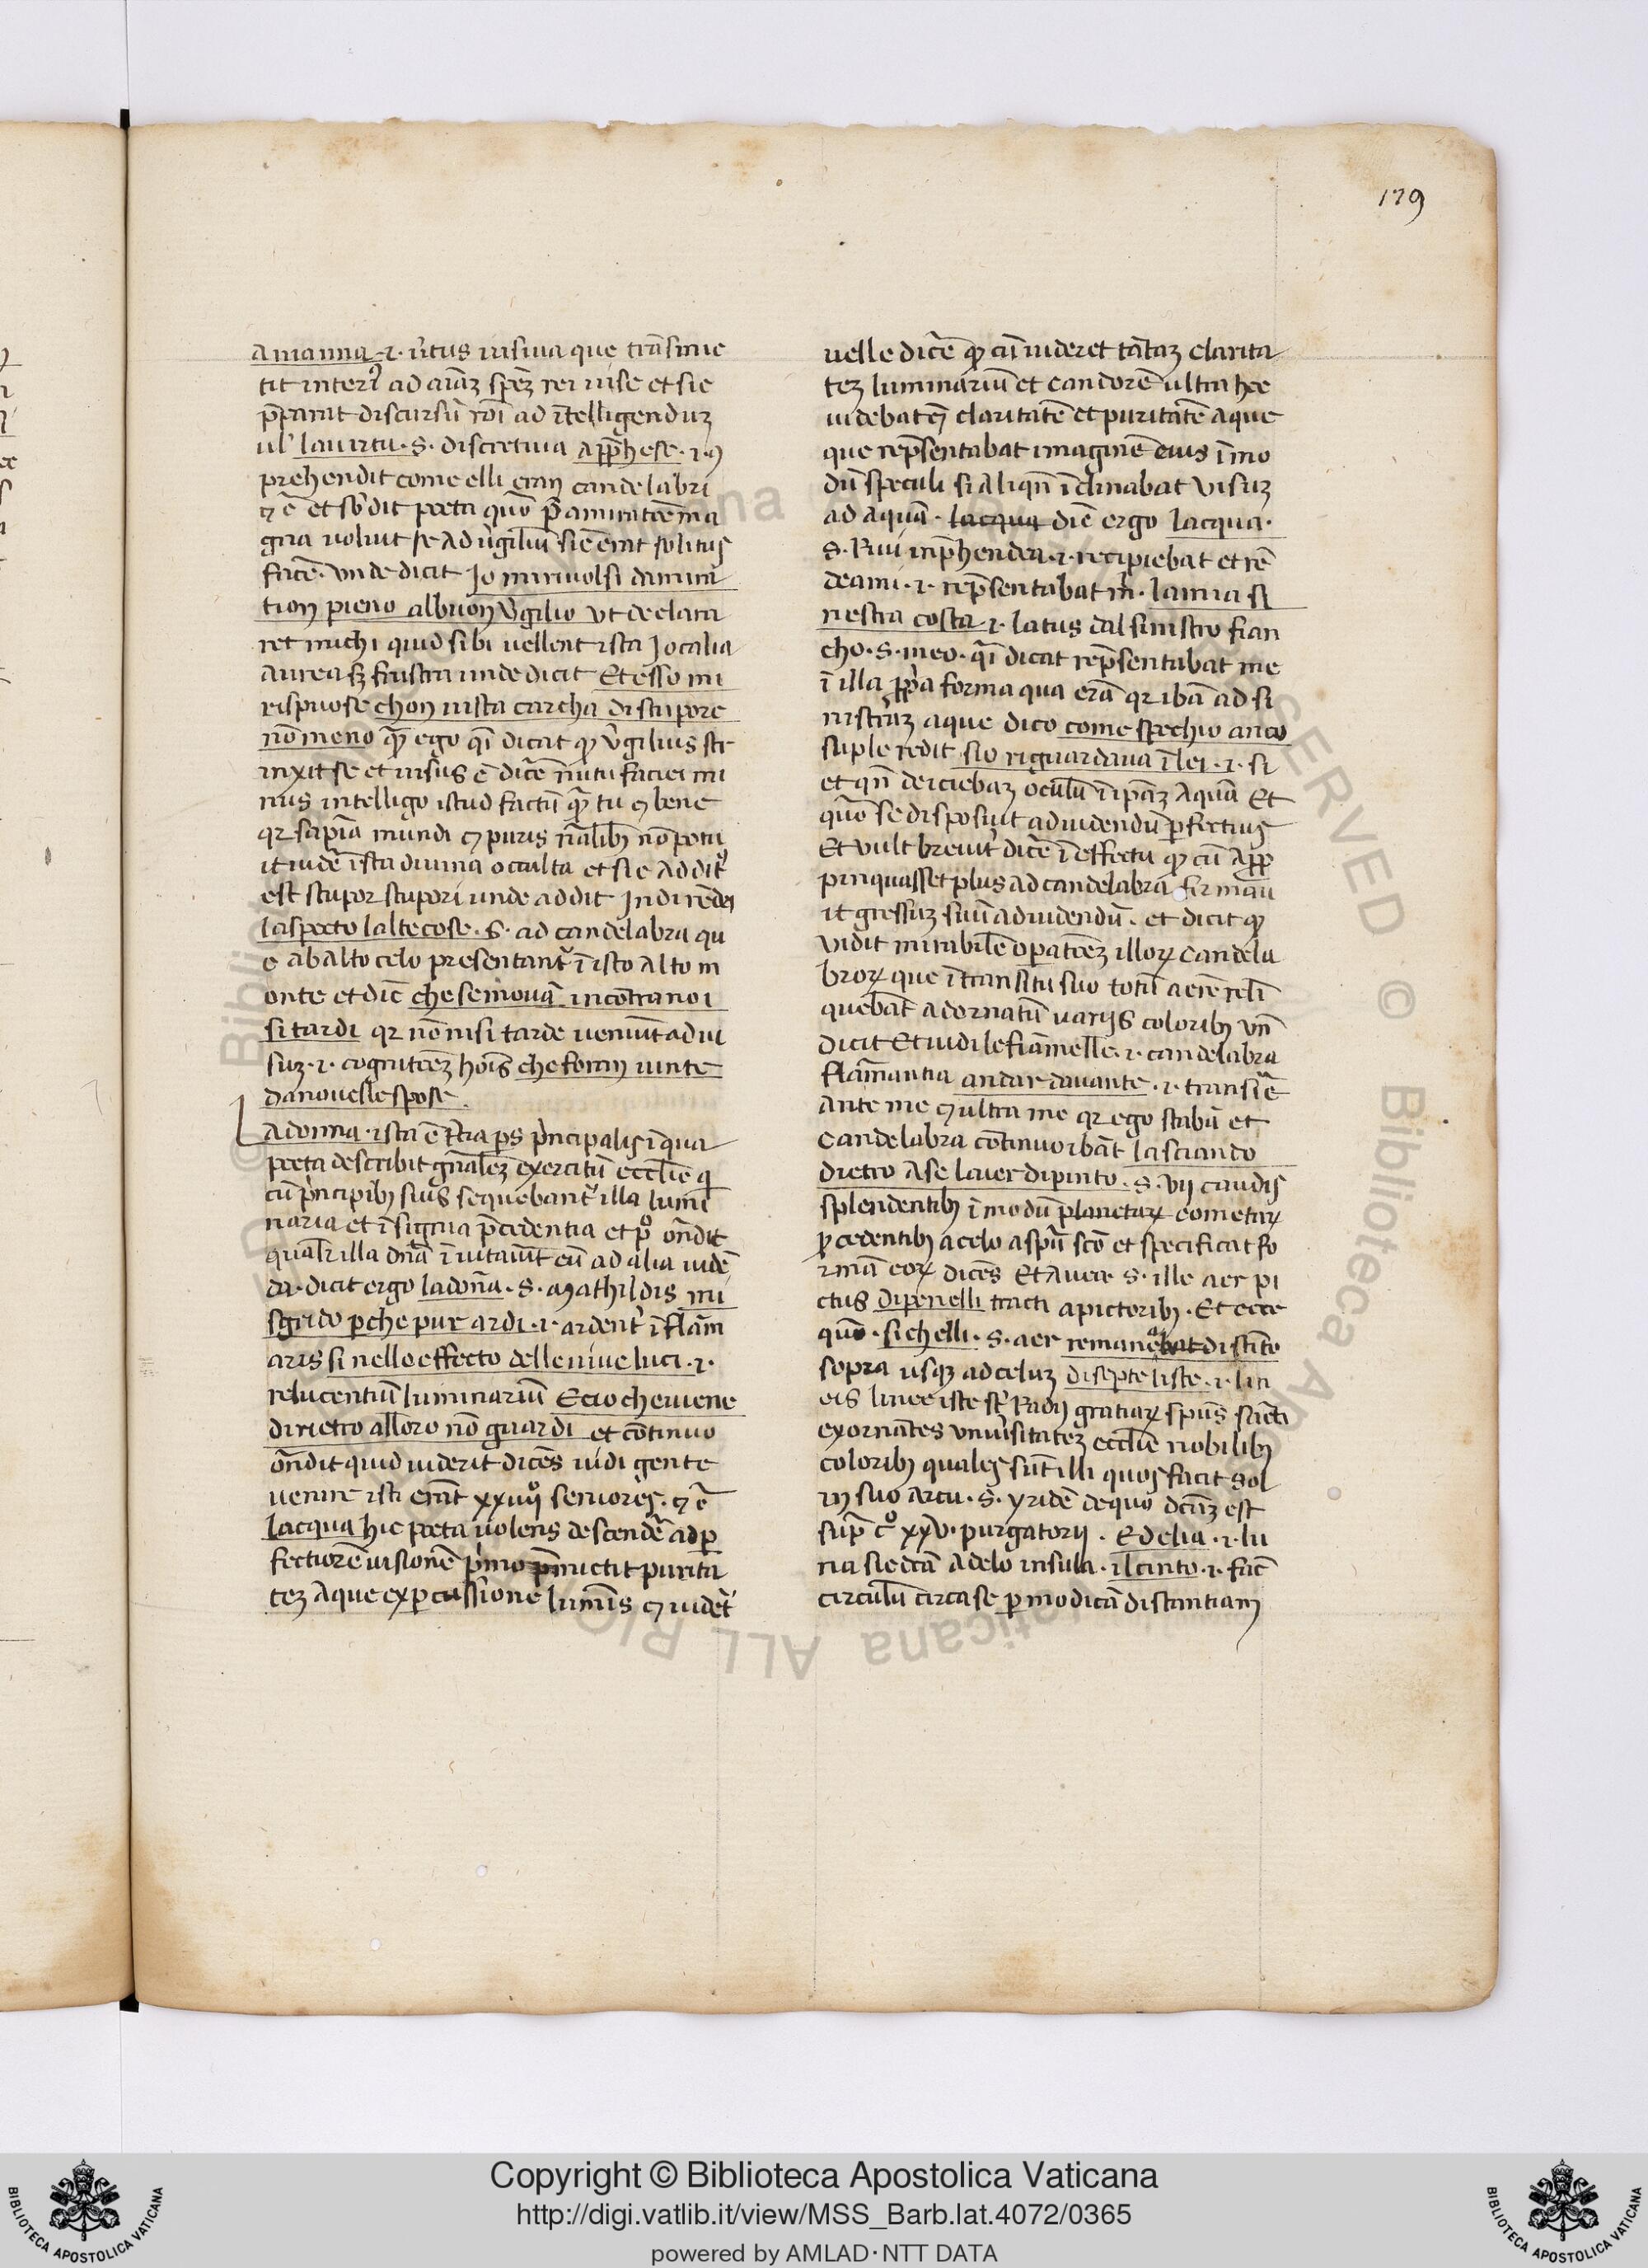 179
amanna .i. v̄tus uisiua que trāsmic
tit interꝰ ad aīaꝫ spēꝫ rei uise et sic
p̄parat discursū rōi ad ītelligenduꝫ
ul' la uirtu .s. discretiua app̄hese .i. ꝯ
prehendit come elli eran candelabri
ꝯ c̄ et sb'dit poeta quō p̄ amiratōeꝫ ma
gna voluit se ad v̄giliū sic erat solitus
facē. vnde dicit Io mi riuolsi damira
tion pieno al buon v̄gilio vt declara
ret michi quid sibi uellent ista Jocalia
aurea sꝫ frustra unde dicit Et esso mi
rispuose chon uista carcha di stupore
nō meno quā ego q̄i dicat ꝙ v̄gilius str
inxit se et uisus ē dicē nutu faciei mi
nus intelligo istud factū quā tu ꝯ bene
qr sapīa mundi ꝯ puris nālibꝫ nō potu
it uidē ista diuina occulta et sic additꝰ
est stupor stupori unde addit Indi rēdei
laspecto lalte cose .s. ad candelabra qu
e ab alto celo presentant' ī isto alto m
onte et dic̄ che se mouā incontra noi
si tardi qr nō nisi tarde ueniūt ad ui
suꝫ .i. cognitōeꝫ hoīs che foran uinte
da nouelle spose.
La donna . ista ē t̄tia ps p̄ncipalis ī qua
poeta describit gn̄aleꝫ exercitū eccl̄ie q
cū p̄ncipibꝫ suis sequebant' illa lumi
naria et īsignia p̄cedentia et pº on̄dit
qualr illa dn̄a īuitauit eū ad alia uidē
da. dicit ergo la donna .s. mathildis mi
sgrido perche pur ardi .i. ardent' īflām
aris si nello effecto delle uiue luci .i.
relucentiū luminariū E cio che uiene
dirietro alloro nō guardi et cōtinuo
on̄dit quid uiderit dicēs uidi gente
uenire isti erāt xxiiij seniores. ꝯ c̄
lacqua hic poeta uolens descendē ad per
fectiorē uisionē p̄mo p̄mictit purita
teꝫ aque ex percussione lumīs ꝯ uidet'
uelle dicē ꝙ cū uideret tātaꝫ clarita
teꝫ luminariū et candorē ultra hec
uidebat ēt claritatē et puritatē aque
que rep̄sentabat imaginē eius ī mo
dū speculi si aliqn̄ īclinabat visuꝫ
ad aquā. lacqua dic̄ ergo lacqua.
.s. Riui inp̄hendea .i. recipiebat et rē
deami .i. rep̄sentabat m̄. la mia si
nestra costa .i. latus dal sinistro fian
cho .s. meo. q̄i dicat rep̄sentabat me
ī illa pp̄a forma qua erā qr ibā ad si
nistraꝫ aque dico come spechio anco
suple redit sio riguardaua ī lei .i. si
et qn̄ deiciebaꝫ oculū ī ip̄aꝫ aquā Et
quō se disposuit ad uidendū perfectius
Et vult breuit' dicē ī effectu ꝙ cū app
pinquasset plus ad candelabra firmau
it gressuꝫ suū ad uidendū. et dicit ꝙ
vidit mirabilē operatōeꝫ illoꝝ candela
broꝝ que ī transitu suo totū aerē reli
quebāt adornatū uarijs coloribꝫ vn̄
dicit Et uidi le fiāmelle .i. candelabra
flāmantia andar dauante .i. transīē
ante me ꝯ ultra me qr ego stabā et
candelabra cōtinuo ibāt lasciando
dietro a se laer dipinto .s. vij caudis
splendentibꝫ ī modū planetaꝝ cometaꝝ
p̄cedentibꝫ a celo a spū scō et specificat fo
rmā eoꝝ dicēs Et auea .s. ille aer pi
ctus di penelli tracti a pictoribꝫ. Et ecce
quō . si chelli .s. aer remanea distīto
sopra usqꝫ ad celuꝫ di septe liste .i. lin
eis linee iste st̄ Radij gratiaꝝ spūs sancti
exornātes vnuīsitateꝫ eccl̄ie nobilibꝫ
coloribꝫ quales sūt illi quos facit sol
in suo arcu .s. yridē de quo dcm̄ est
sup̄ cº xxv. purgatorij . E delia .i. lu
na sic dcā a delo insula . il cinto .i. fac̄
circulū circa se per modicā distantiam
Copyright © Biblioteca Apostolica Vaticana
http://digi.vatlib.it/view/MSS_Barb.lat.4072/0365
powered by AMLAD·NTT DATA
BIBLIOTECA APOSTOLICA VATICANA
BIBLIOTECA APOSTOLICA VATICANA